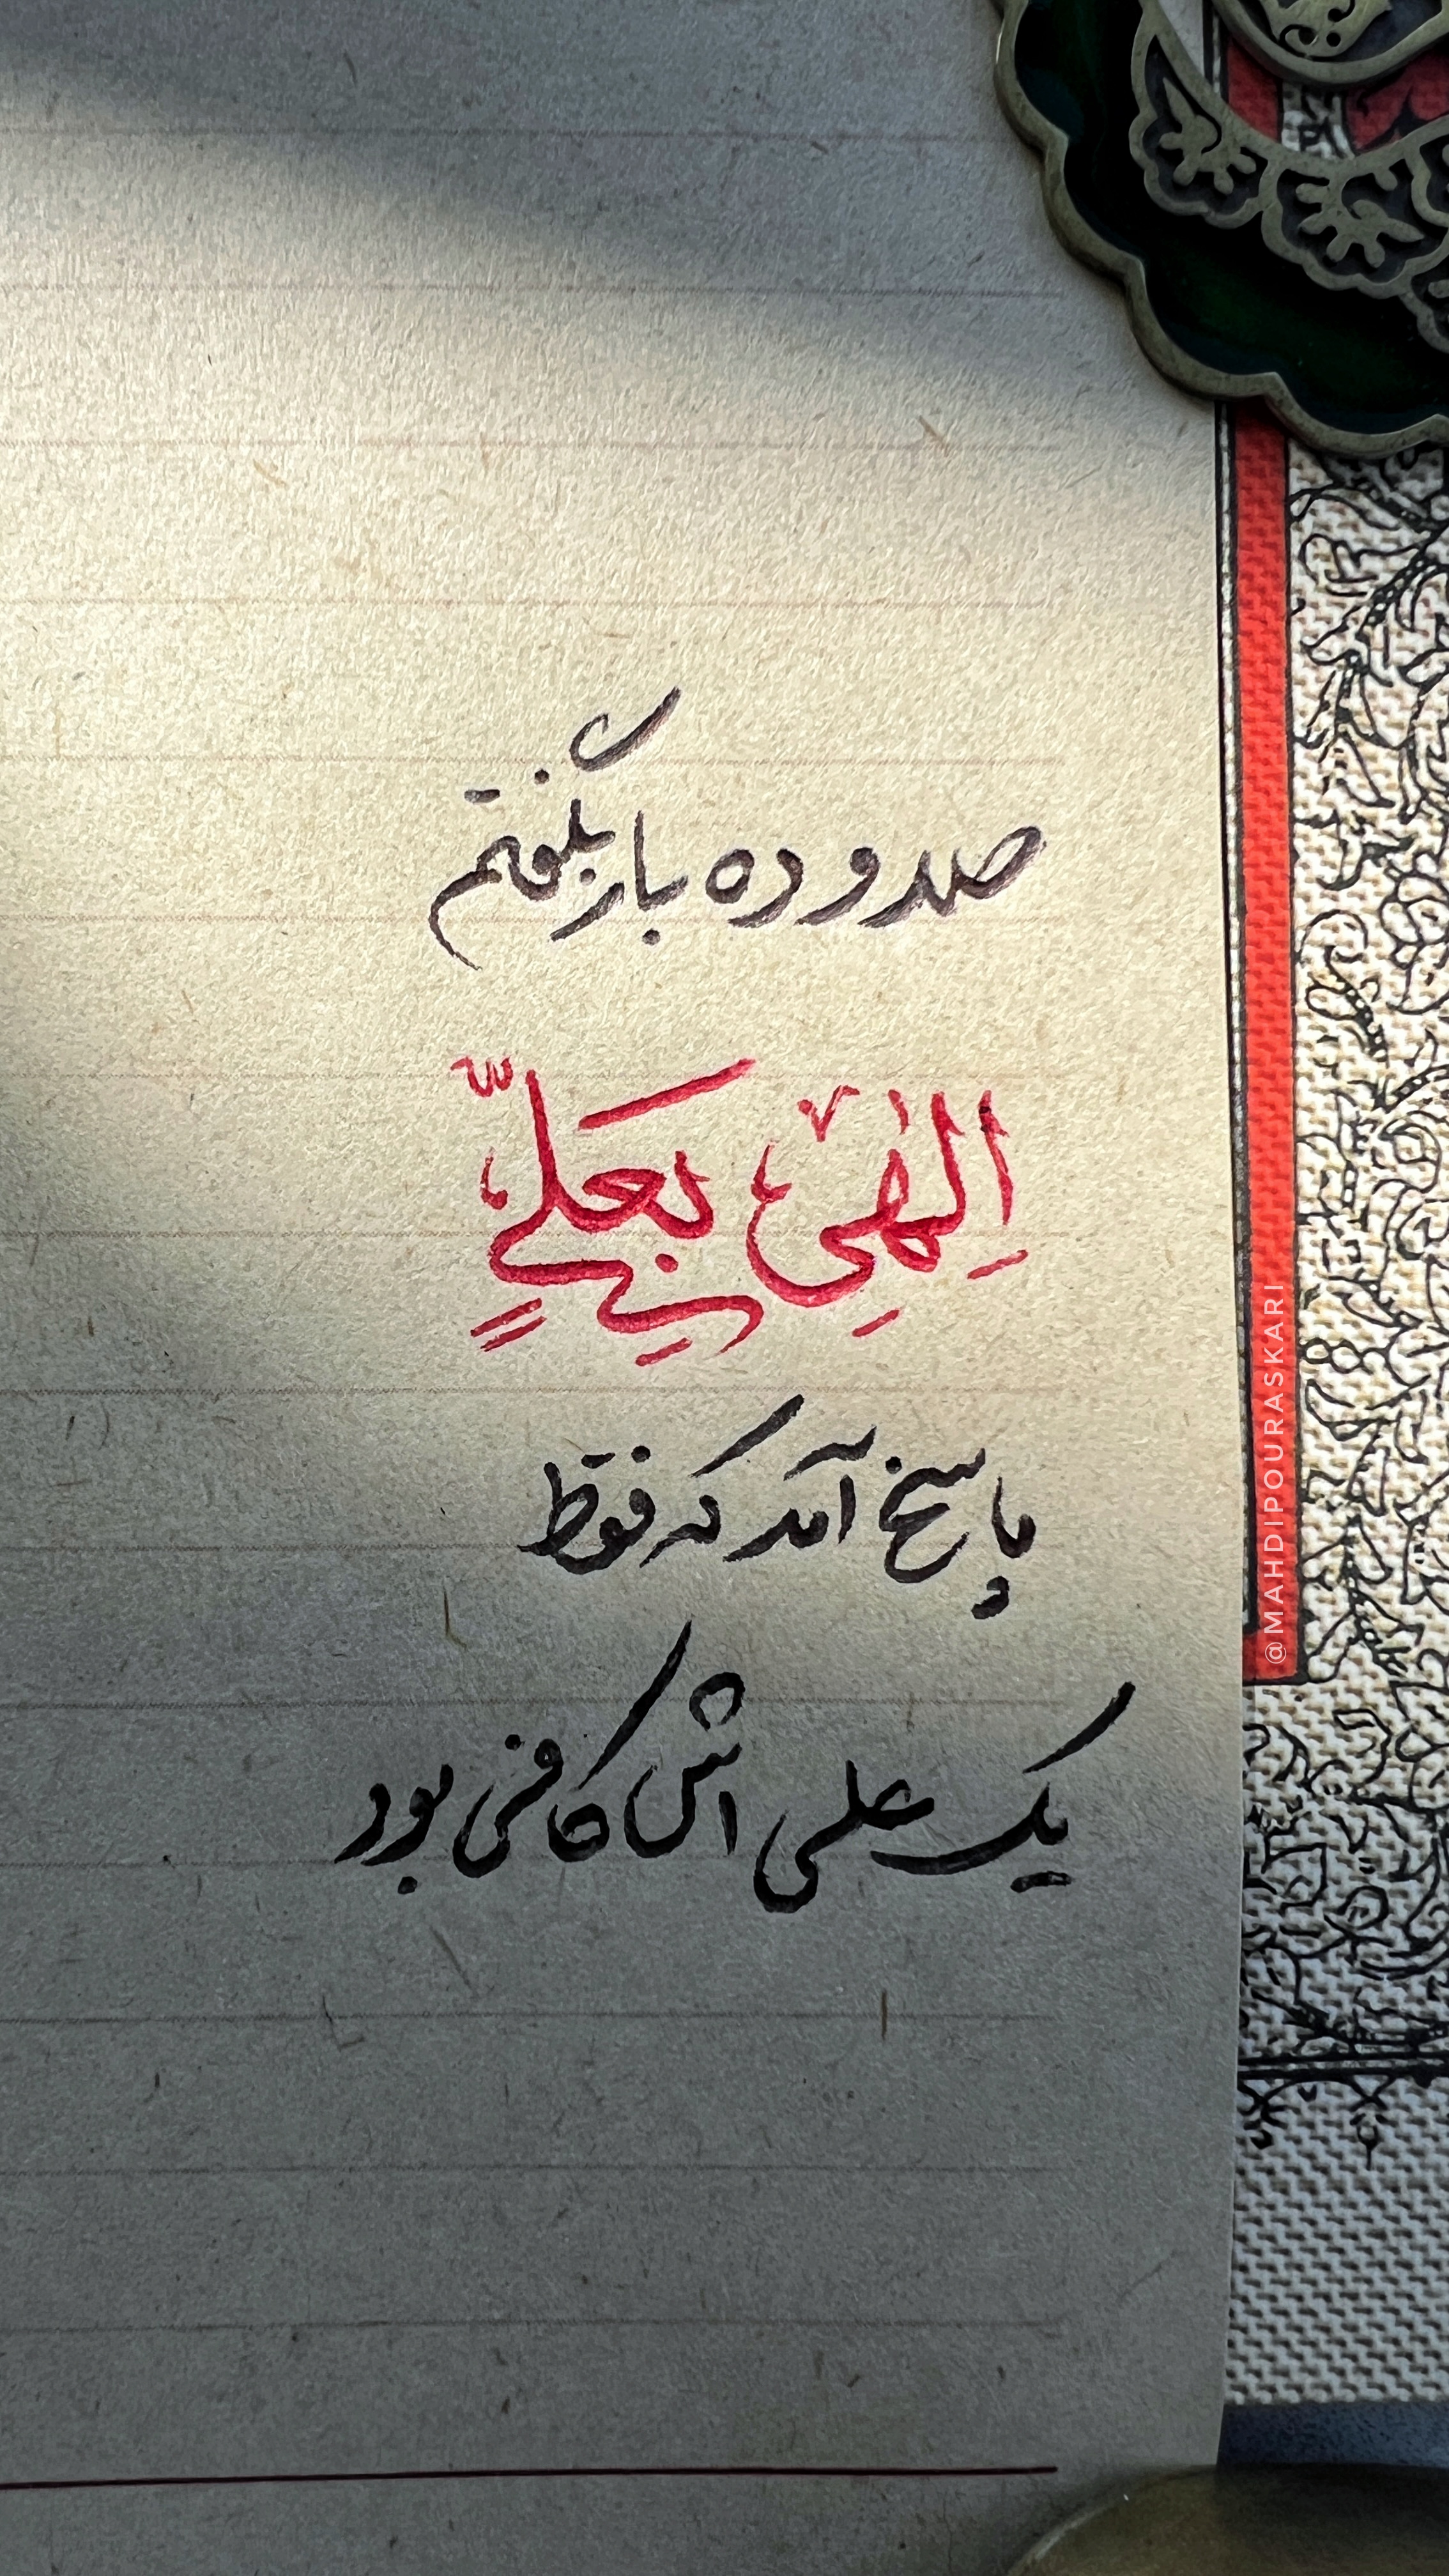 صد و ده بار بگفتم
اِلٰهِی بَعَلِیٍّ
پاسخ آمد که فقط
یک علی اش کافی بود
@MAHDIPOURASKARI